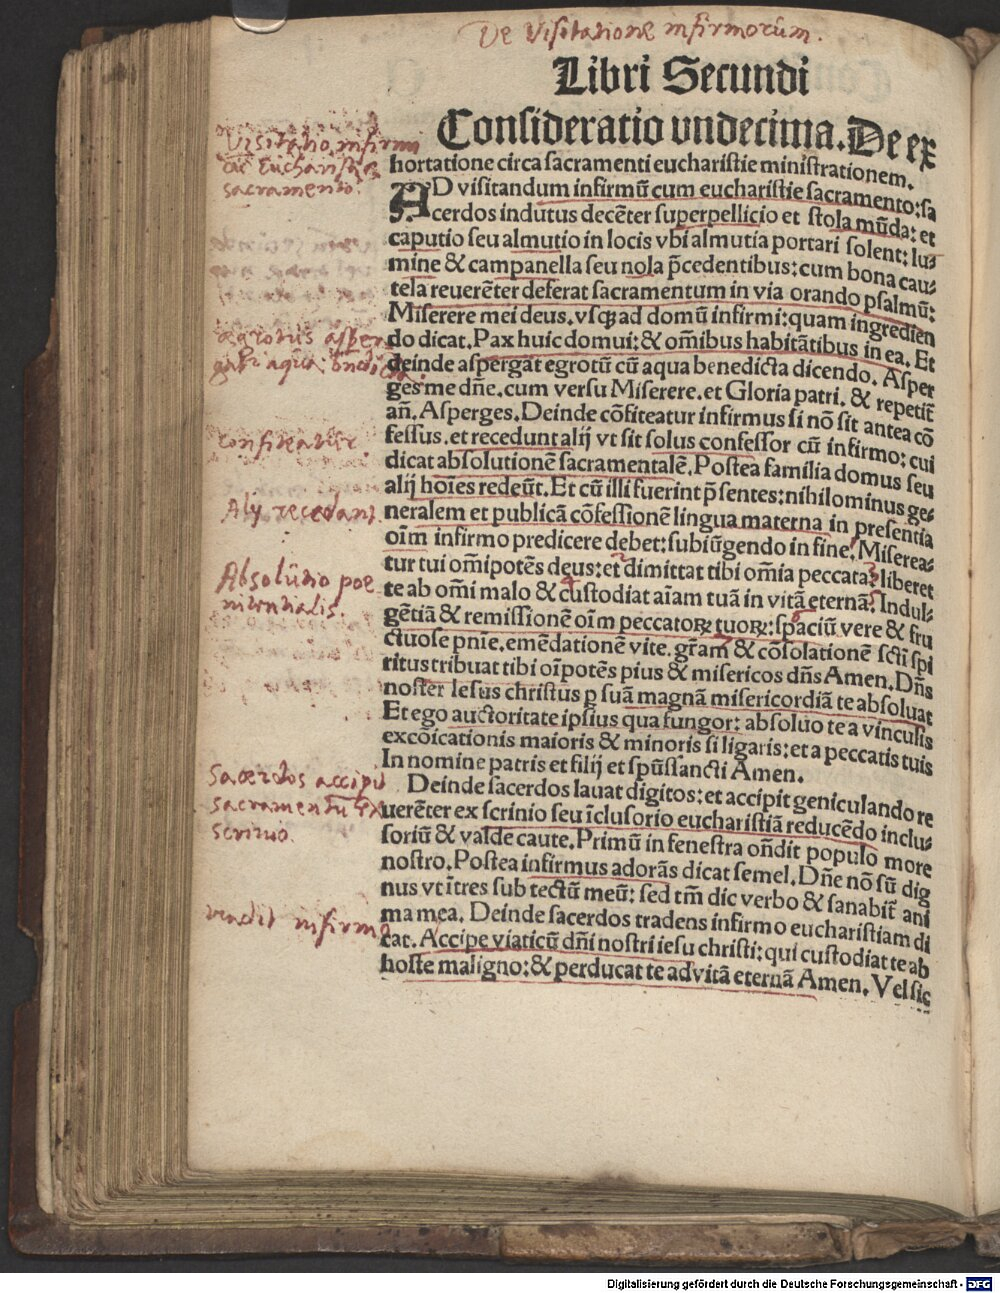 De Visitatione infirmorum.
Libri Secundi
Consideratio vndecima. De ex
hortatione circa sacramenti eucharistie ministrationem.
Visitatio infirmi
AD visitandum infirmū cum eucharistie sacramento: sa
cū Eucharistiae
sacramento.
cerdos indutus decēter superpellicio et stola mūda: et
caputio seu almutio in locis vbi almutia portari solent: lu⸗
mine & campanella seu nola p̄cedentibus: cum bona cau⸗
tela reuerēter deferat sacramentum in via orando psalmū:
Miserere mei deus. vsqꝫ ad domū infirmi: quam ingredien
aegrotus asper
do dicat. Pax huic domui: & om̄ibus habitātibus in ea. Et
gat aqua
deinde aspergat egrotū cū aqua benedicta dicendo. Asper
ges me dn̄e. cum versu Miserere. et Gloria patri. & repetit̄
an̄. Asperges. Deinde cōfiteatur infirmus si nō sit antea cō
confiteatur
fessus. et recedunt alij vt sit solus confessor cū infirmo: cui
dicat absolutionē sacramentalē. Postea familia domus seu
alij hoīes redeūt. Et cū illi fuerint p̄sentes: nihilominus ge⸗
Alij recedant
neralem et publicā cōfessionē lingua materna in presentia
oīm infirmo predicere debet: subiūgendo in fine. Miserea⸗
tur tui om̄ipotēs deus: et dimittat tibi om̄ia peccata: liberet
Absolutio poe
nitentialis.
te ab om̄i malo & custodiat aīam tuā in vitā eternā. Indul⸗
gētiā & remissionē oīm peccatoꝝ tuoꝝ: spaciū vere & fru
ctuose pnīe. emēdationē vite. gr̄am & cōsolationē sctī spi
ritus tribuat tibi oīpotēs pius & misericos dn̄s Amen. Dn̄s
noster Iesus christus ꝑ suā magnā misericordiā te absoluat
Et ego auctoritate ipsius qua fungor: absoluo te a vinculis
excōicationis maioris & minoris si ligaris: et a peccatis tuis
In nomine patris et filij et spūssancti Amen.
Sacerdos accipit
Deinde sacerdos lauat digitos: et accipit geniculando re
sacramentū ex
scrinio.
uerēter ex scrinio seu īclusorio eucharistiā reducēdo inclu⸗
soriū & valde caute. Primū in fenestra on̄dit populo more
nostro. Postea infirmus adorās dicat semel. Dn̄e nō sū dig
nus vt ītres sub tectū meū: sed tm̄ dic verbo & sanabit̄ ani
infirmo
ma mea. Deinde sacerdos tradens infirmo eucharistiam di
cat. Accipe viaticū dn̄i nostri iesu christi: qui custodiat te ab
hoste maligno: & perducat te ad vitā eternā Amen. Vel sic
Digitalisierung gefördert durch die Deutsche Forschungsgemeinschaft - DFG